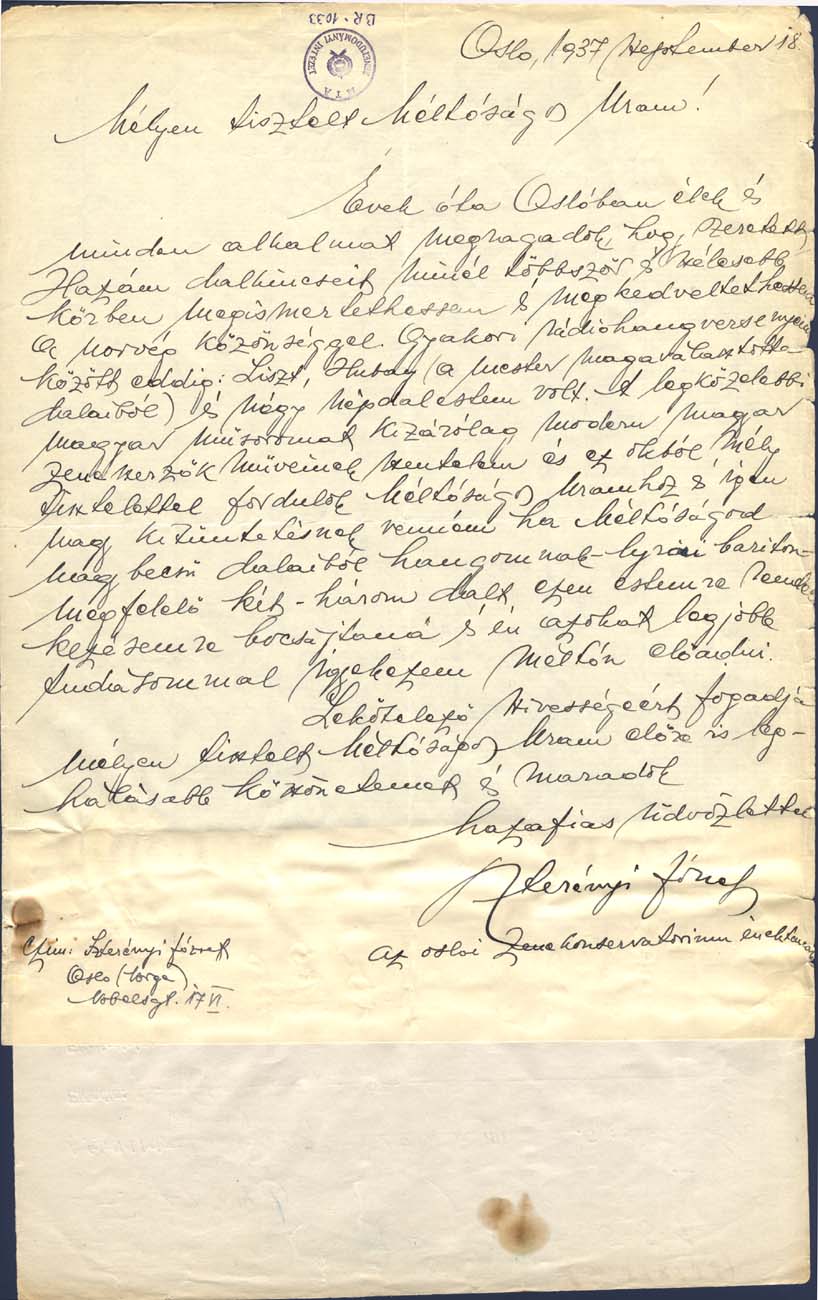 BR·1033
MTA
ZENETUDOMÁNYI INTÉZET
Oslo, 1937 szeptember 18.
Mélyen tisztelt Méltóságos Uram!
Évek óta Oslóban élek és
minden alkalmat megragadok, hogy szeretett
Hazám dalkincseit minél többször és szélesebb
körben megismertethessem és megkedveltethessem
a norvég közönséggel. Gyakori rádióhangversenyeim
között eddig: Liszt, Hubay (a mester maga választotta
dalaiból) és négy népdalestem volt. A legközelebbi
magyar műsoromat kizárólag modern magyar
zeneszerzők műveinek szentelem és ez okból mély
tisztelettel fordulok Méltóságos Uramhoz és igen
nagy kitüntetésnek venném ha Méltóságod
nagybecsű dalaiból hangomnak – lyrai bariton –
megfelelő két-három dalt ezen estemre rendel-
kezésemre bocsájtaná és én azokat legjobb
tudásommal igyekezem méltón előadni.
Lekötelező szivességeért fogadja
mélyen tisztelt Méltóságos Uram előre is leg-
hálásabb köszönetemet és maradok
hazafias üdvözlettel
Szterényi József
az osloi Zenekonservatorium énektanára
Czim: Szterényi József
Oslo (Norge)
Nobelsgt. 17 VI.